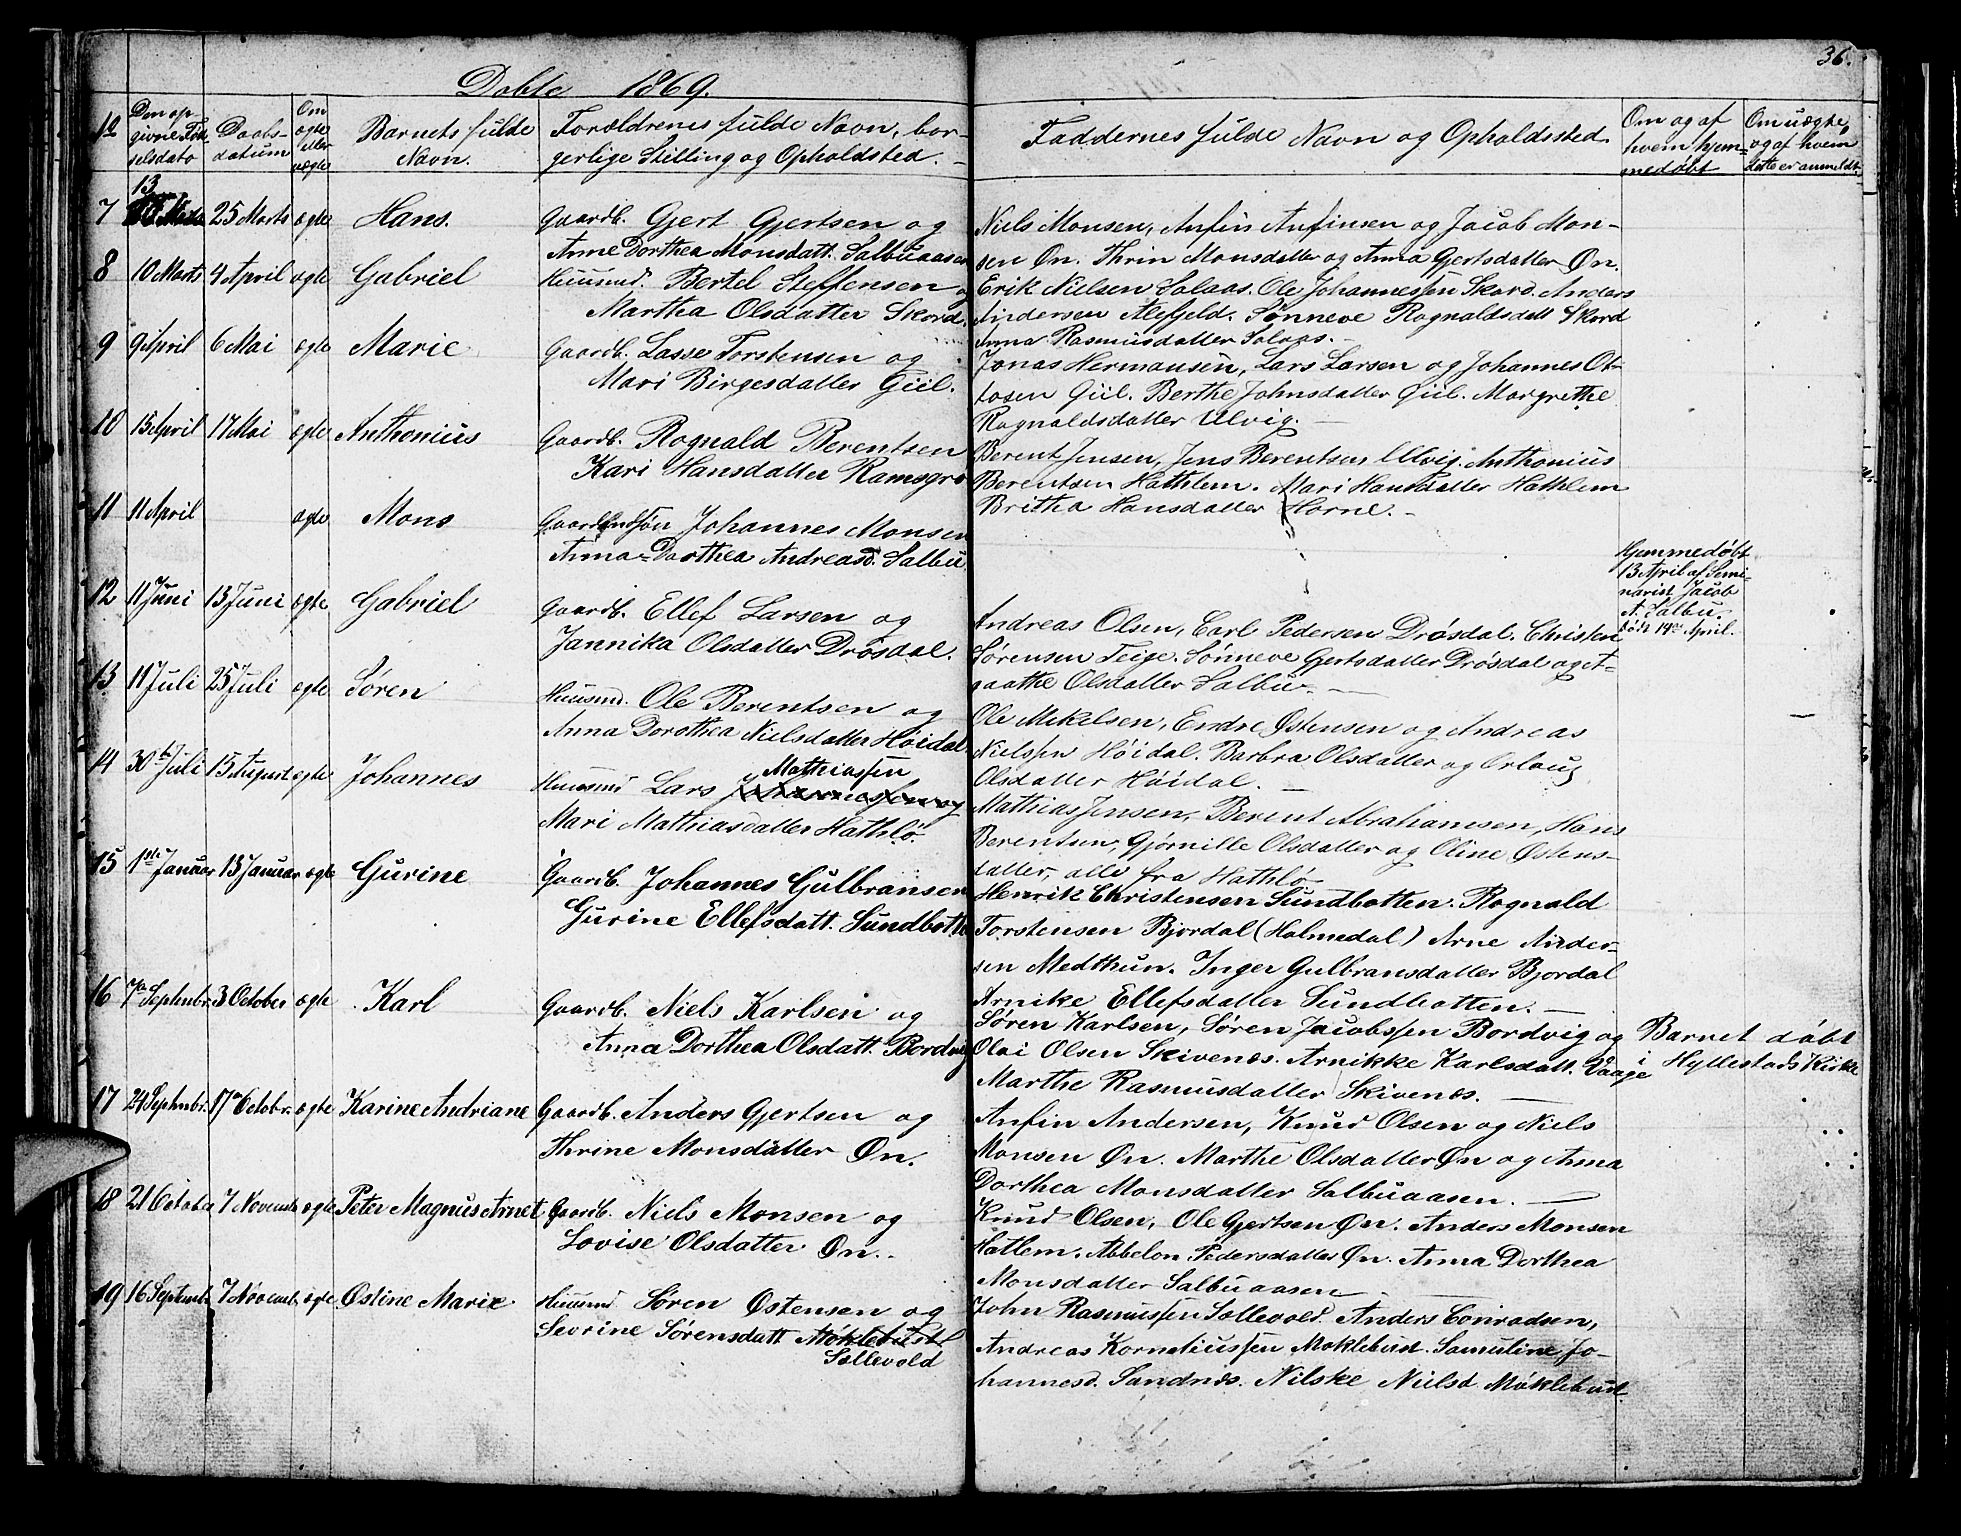 36.
Døbte 1869.
No
Den opgivne Fødselsdato
Daabsdatum
Om ægte eller uægte
Barnets fulde Navn.
Forældrenes fulde Navn, borgerlige Stilling og Opholdsted.
Faddernes fulde Navn og Opholdssted
Om og af hvem hjemmedøbt
Om uægte, og af hvem dette er anmeldt
7 13 25 Marts ægte Hans.
Gaardb. Gjert Gjertsen og
Anne Dorthea Monsdatt. Salbuaasen
Niels Monsen, Anfin Anfinsen og Jacob Mon-
sen Øn. Thrin Monsdatter og Anna Gertsdatter Øn.
8 10 Marts 4 April ægte Gabriel
Huusmd. Bertel Steffensen og
Martha Olsdatter Skord.
Erik Nielsen Solaas. Ole Johannessen Skord. Anders
Andersen Alefjeld. Sønneve Rognaldsdatt Skord
Anna Rasmusdatter Solaas.
9 9 April 6 Mai ægte Marie
Gaardb. Lasse Torstensen og
Mari Birgesdatter Giil.
Jonas Hermansen, Lars Larsen og Johannes Ot-
tosen Giil. Berthe Johnsdatter Giil. Margrethe
Rognaldsdatter Ulvig.
10 15 April 17 Mai ægte Anthonius
Gaardb. Rognald Berentsen
Kari Hansdatter Ramsgrø
Berent Jensen, Jens Berentsen Ulvig. Anthonius
Berentsen Hathlem. Mari Hansdatter Hathlem
Britha Hansdatter Horne.
11 11 April ægte Mons
Gaardmdsøn Johannes Monsen
Anna-Dorthea Andreasd. Salbu
Hjemmedøbt
13 April af Semi-
narist Jacob
A. Salbu.
død 14de April.
12 11 Juni 13 Juni ægte Gabriel
Gaardb. Ellef Larsen og
Jannika Olsdatter Drøsdal.
Andreas Olsen, Carl Pedersen Drøsdal. Christen
Sørensen Teige. Sønneve Gertsdatter Drøsdal og A-
gaathe Olsdatter Salbu.
13 11 Juli 25 Juli ægte Søren
Huusmd. Ole Berentsen og
Anna Dorothea Nielsdatter Høidal
Ole Mikelsen, Endre Østensen og Andreas
Nielssen Høidal. Barbra Olsdatter og Orlaug
Olsdatter Høidal.
14 30 Juli 15 August ægte Johannes
Mathiassen
Huusmd Lars Johannessen og
Mari Mathiasdatter Hathlø.
Mathias Jensen, Berent Abrahamsen, Hans
Berentsen, Gjørnille Olsdatter og Oline Østens-
datter, alle fra Hathlø
15 1ste Januar 13 Januar ægte Gurine
Gaardb. Johannes Gulbransen
Gurine Ellefsdatt. Sundbotten
Henrik Christensen Sundbotten. Rognald
Torstensen Bjordal (Holmedal) Arne Ander-
sen Medthun. Inger Gulbransdatter Bjordal
Arnike Ellefsdatter Sundbotten.
16 7de Septmbr. 3 October ægte Karl
Gaardb. Niels Karlsen og
Anna Dorthea Olsdatt. Bordvig
Søren Karlsen, Søren Jacobssen Bordvig og
Olai Olsen Skivenæs. Arnikke Karlsdatt. Vaage
Marthe Rasmusdatter Skivenæs.
Barnet døbt
i Hyllestads Kirke
17 24 Septmbr. 17de Octobr. ægte Karine Andriane
Gaardb. Anders Gjertsen og
Thrine Monsdatter Øn.
Anfin Andersen, Knud Olsen og Niels
Monsen Øn. Marthe Olsdatter Øn og Anna
Dorthea Monsdatter Salbuaasen.
18 21 October 7 Novemb ægte Peter Magnus Arnet
Gaardb. Niels Monsen og
Lovise Olsdatter Øn.
Knud Olsen, Ole Gjertsen Øn. Anders Monsen
Hatlem. Abbelon Pedersdatter Øn. Anna Dorthea
Monsdatter Salbuaasen
19 16 Septemb. 7 Novemb. ægte Østine Marie
Huusmd Søren Østensen og
Sevrine Sørensdatt Møklebust
Sollevold
John Rasmussen Sollevold. Anders Conradsen,
Andreas Korneliussen Moklebust. Samuline Jo-
hannesd. Sandnæs. Nilske Nielsd Møklebust